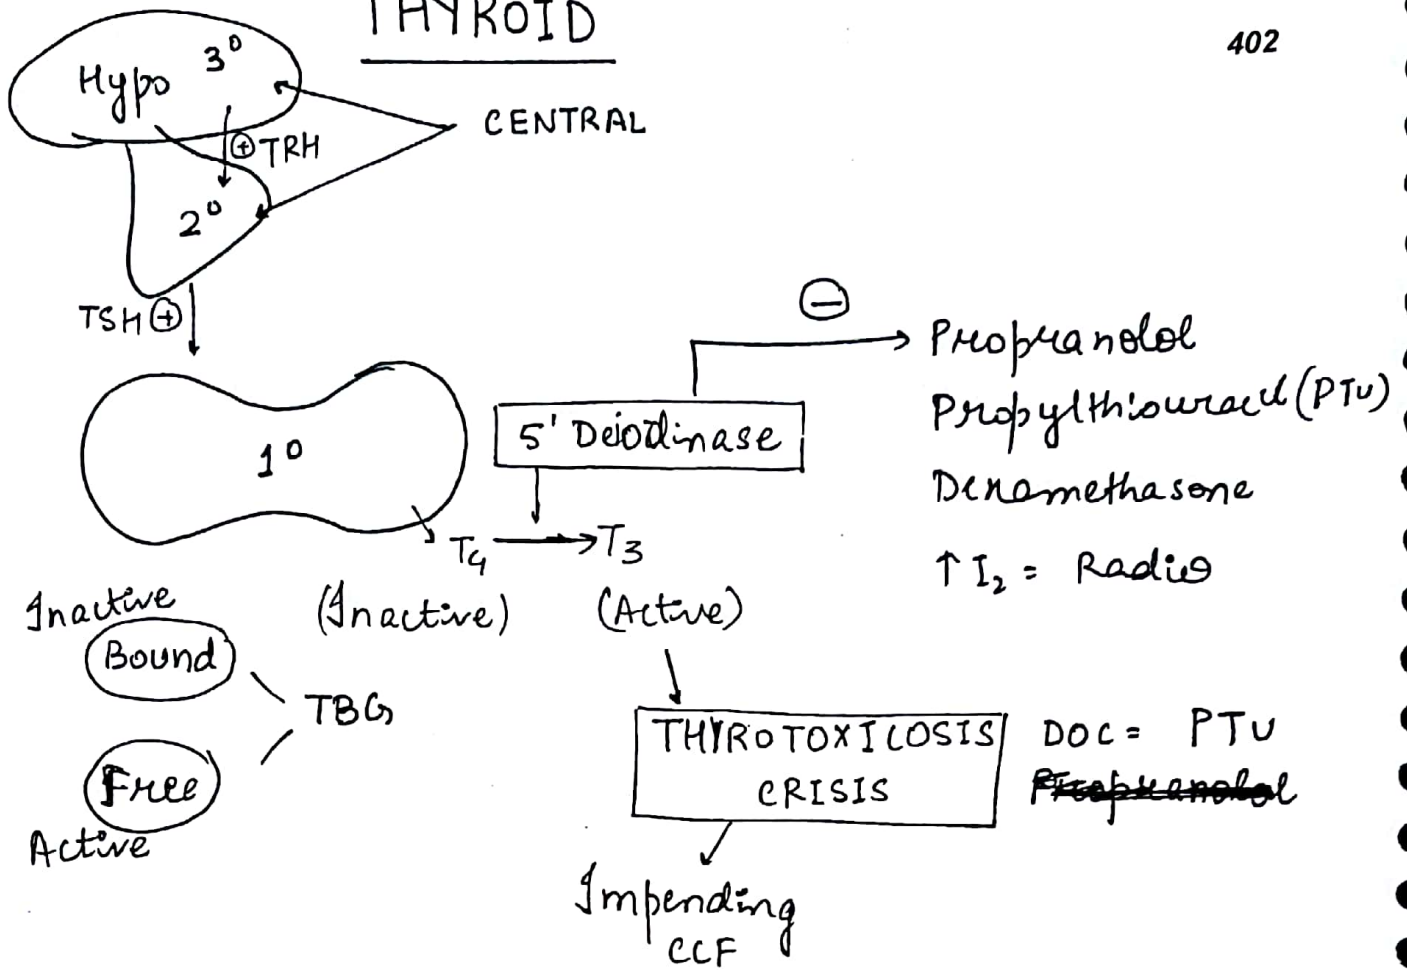 THYROID
402
Hypo 3°
CENTRAL
⊕ TRH
2°
TSH ⊕
⊖
Propranolol
Propylthiouracil (PTU)
Dexamethasone
↑ I₂ = Radio
1°
5' Deiodinase
T₄ → T₃
(Inactive) (Active)
Inactive
Bound
TBG
Free
Active
THYROTOXICOSIS
CRISIS
DOC = PTU
Propranolol
Impending
CCF